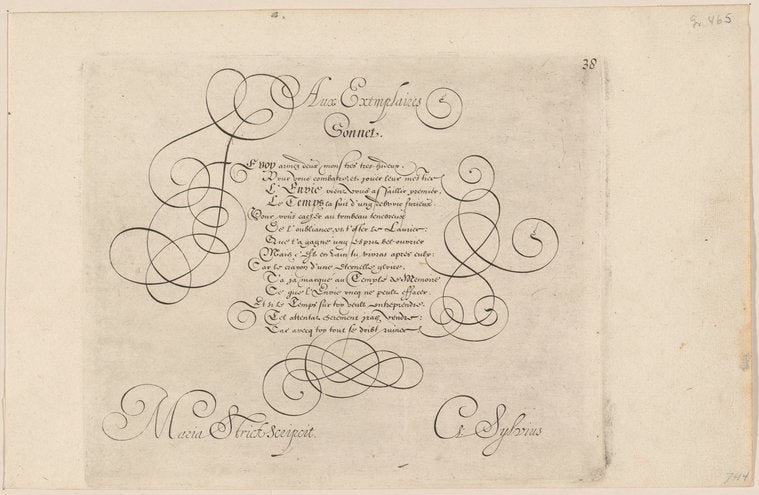 gr. 465
38
Aux Exemplaires
Sonnet.
Je voy armez deux monstres tres-hideux,
Pour vous combatre, et jouer leur mestier
L'Envie vient vous assaillir premier,
Le Temps la suit d'ung rebours furieux.
Pour vous cacher au tombeau tenebreux
De l'oubliance, et t'oster le Laurier:
Que t'a gagné ung esprit bel ouvrier
Mais c'est en vain tu vivras après eulx:
Car le crayon d'une éternelle gloire,
T'a ja marque au Temple de Memoire
Ce que l'Envie oncq ne peult effacer.
Et si le Temps sur toy veult entreprendre
Tel attentat cherement vendre:
Car avecq toy tout se doibt ruiner
Maria Strick Scripsit.
Cl Sylvius
744